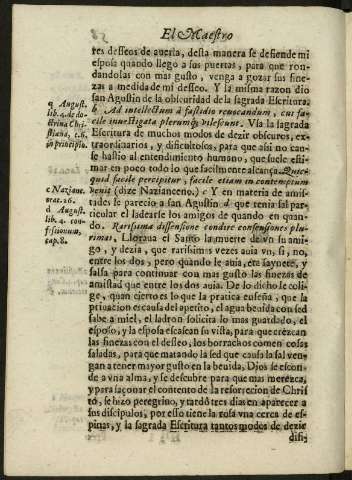 El Maestro
res desseos de auerla, desta manera se defiende mi
esposa quando llego a sus puertas, para que ron-
dandolas con mas gusto, venga a gozar sus fine-
zas a medida de mi desseo. Y la misma razon dio
san Agustin de la obscuridad de la sagrada Escritura.
b Ad intellectum à fastidio reuocandum, cui fa-
cile inuestigata plerumq; vilescunt. Vsa la sagrada
Escritura de muchos modos de dezir obscuros, ex-
traordinarios, y dificultosos, para que assi no can-
se hastio al entendimiento humano, que suele esti-
mar en poco todo lo que facilmente alcança. Quic-
quid facile percipitur, facile etiam in contemptum
venit (dize Nazianceno.) c Y en materia de amis-
tades le parecio a san Agustin d que tenia sal par-
ticular el ladearse los amigos de quando en quan-
do. Rarissima dissensione condire consensiones plu-
rimas, Lloraua el Santo la muerte de vn su ami-
go, y dezia, que rarissimas vezes auia vn, si, no,
entre los dos; pero quando le auia, era saynete, y
salsa para continuar con mas gusto las finezas de
amistad que entre los dos auia. De lo dicho se coli-
ge, quan cierto es lo que la pratica enseña, que la
priuacion es causa del apetito, el agua beuida con sed
sabe a miel, el ladron solicita lo mas guardado, el
esposo, y la esposa escasean su vista, para que crezcan
las finezas con el desseo, los borrachos comen cosas
saladas, para que matando la sed que causa la sal ven-
gan a tener mayor gusto en la beuida, Dios se escon-
de a vna alma, y se descubre para que mas merezca,
y para saçonar el contento de la resurreccion de Chris
to, se hizo peregrino, y tardò tres dias en aparecer a
sus discipulos, por esso tiene la rosa vna cerca de es-
pinas, y la sagrada Escritura tantos modos de dezir
August.
lib. 4. de do-
ctrina Chri-
stiana, c. 6.
in principio.
c Nazianc.
orat. 26.
d August.
lib. 4. con-
fissionum,
cap. 8.